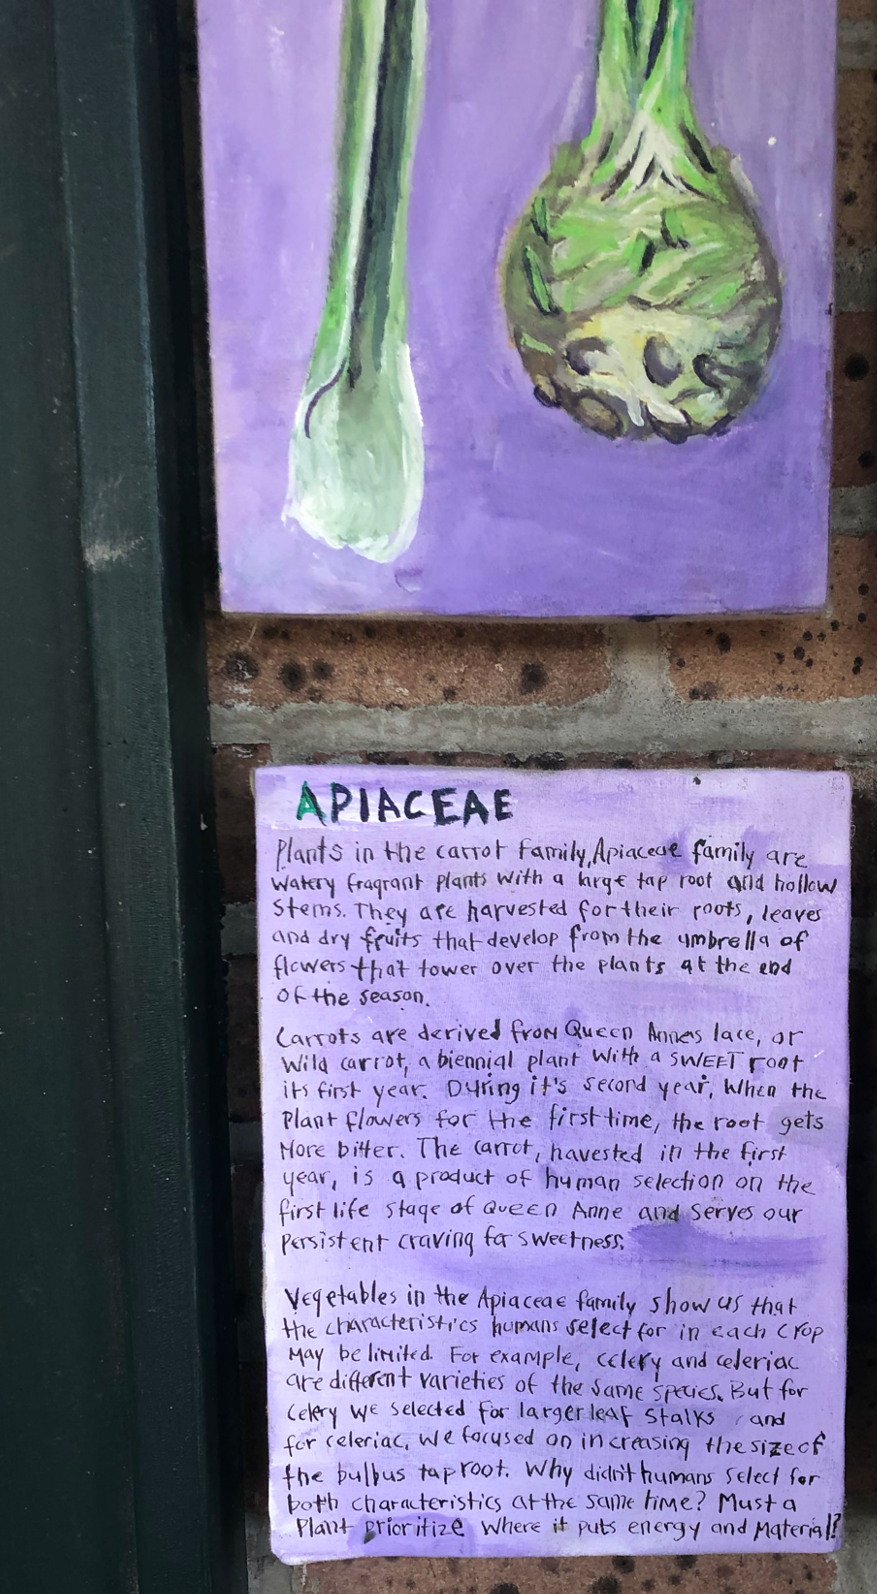 APIACEAE
Plants in the carrot family, Apiaceae family are
watery fragrant plants with a large tap root and hollow
stems. They are harvested for their roots, leaves
and dry fruits that develop from the umbrella of
flowers that tower over the plants at the end
of the season.
Carrots are derived from Queen Annes lace, or
wild carrot, a biennial plant with a SWEET root
its first year. During it's second year, when the
plant flowers for the first time, the root gets
more bitter. The carrot, havested in the first
year, is a product of human selection on the
first life stage of Queen Anne and serves our
persistent craving for sweetness.
Vegetables in the Apiaceae family show us that
the characteristics humans select for in each crop
may be limited. For example, celery and celeriac
are different varieties of the same species. But for
celery we selected for larger leaf stalks, and
for celeriac, we focused on increasing the size of
the bulbus taproot. Why didn't humans select for
both characteristics at the same time? Must a
plant prioritize where it puts energy and material?